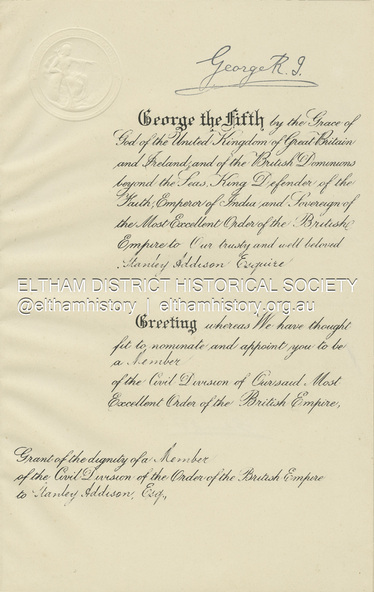 George R. I.
George the Fifth by the Grace of
God of the United Kingdom of Great Britain
and Ireland, and of the British Dominions
beyond the Seas, King, Defender of the
Faith, Emperor of India, and Sovereign of
the Most Excellent Order of the British
Empire to Our trusty and well beloved
Stanley Addison Esquire
ELTHAM DISTRICT HISTORICAL SOCIETY
@elthamhistory | elthamhistory.org.au
Greeting whereas We have thought
fit to nominate and appoint you to be
a Member
of the Civil Division of Our said Most
Excellent Order of the British Empire,
Grant of the dignity of a Member
of the Civil Division of the Order of the British Empire
to Stanley Addison, Esq.,